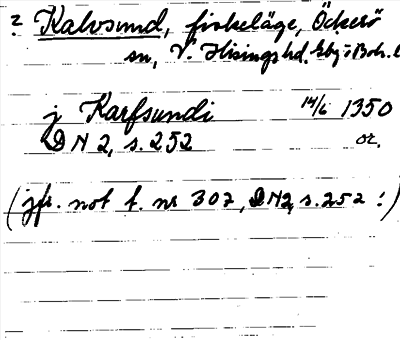 ? Kalvsund, fiskeläge, Öckerö
sn, V. Hisings hd. Gbg. i Boh. l
j Karfsundi 14/6 1350
DN 2, s. 252 or.
(jfr. not t. nr 307, DN2, s. 252 !)